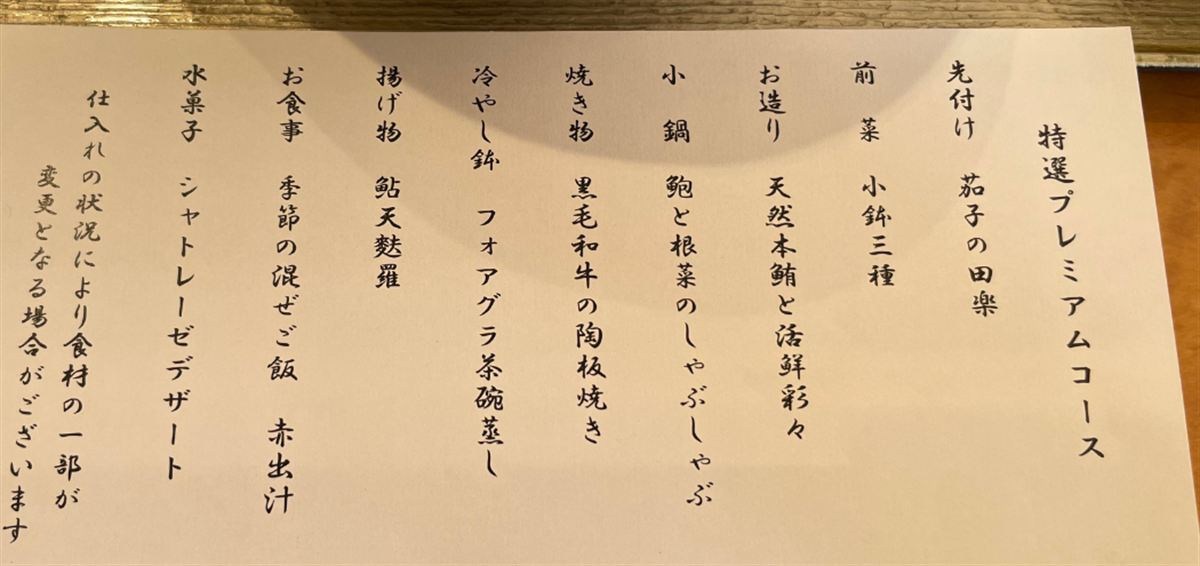 特選プレミアムコース
先付け 茄子の田楽
前菜 小鉢三種
お造り 天然本鮪と活鮮彩々
小鍋 鮑と根菜のしゃぶしゃぶ
焼き物 黒毛和牛の陶板焼き
冷やし鉢 フォアグラ茶碗蒸し
揚げ物 鮎天麩羅
お食事 季節の混ぜご飯 赤出汁
水菓子 シャトレーゼデザート
仕入れの状況により食材の一部が
変更となる場合がございます